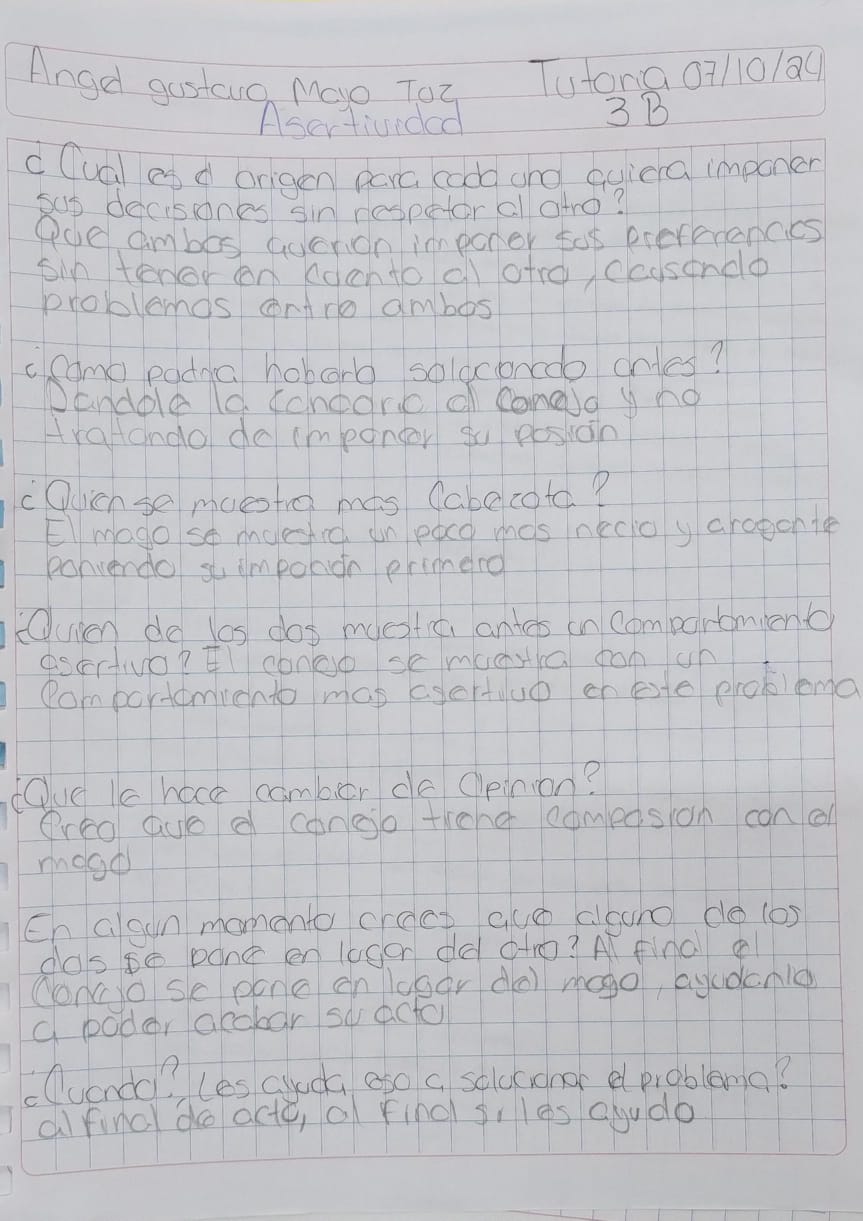 Angel gustavo Mayo Toz Tutoria 07/10/24
Asertividad 3B
¿Cual es el origen para cada uno quiera imponer
sus decisiones sin respetar al otro?
Que ambos querian imponer sus preferencias
sin tener en cuenta al otro, causando
problemas entre ambos
¿Como podria haberlo solucionado antes?
Dandole la zanahoria al conejo y no
tratando de imponer su posicion
¿Quien se muestra mas cabezota?
El mago se muestra un poco mas necio y arogante
poniendo su imposicion primero
¿Quien de los dos muestra antes un comportamiento
asertivo? El conejo se muestra con un
comportamiento mas asertivo en este problema
¿Que le hace cambiar de opinion?
Creo que el conejo tiene compasion con el
mago
En algun momento crees que alguno de los
dos se pone en lugar del otro? Al final el
Conejo se pone en lugar del mago, ayudanlo
a poder acabar su acto
¿Cuando? Les ayuda eso a solucionar el problema?
al final de acto, al final si les ayudo